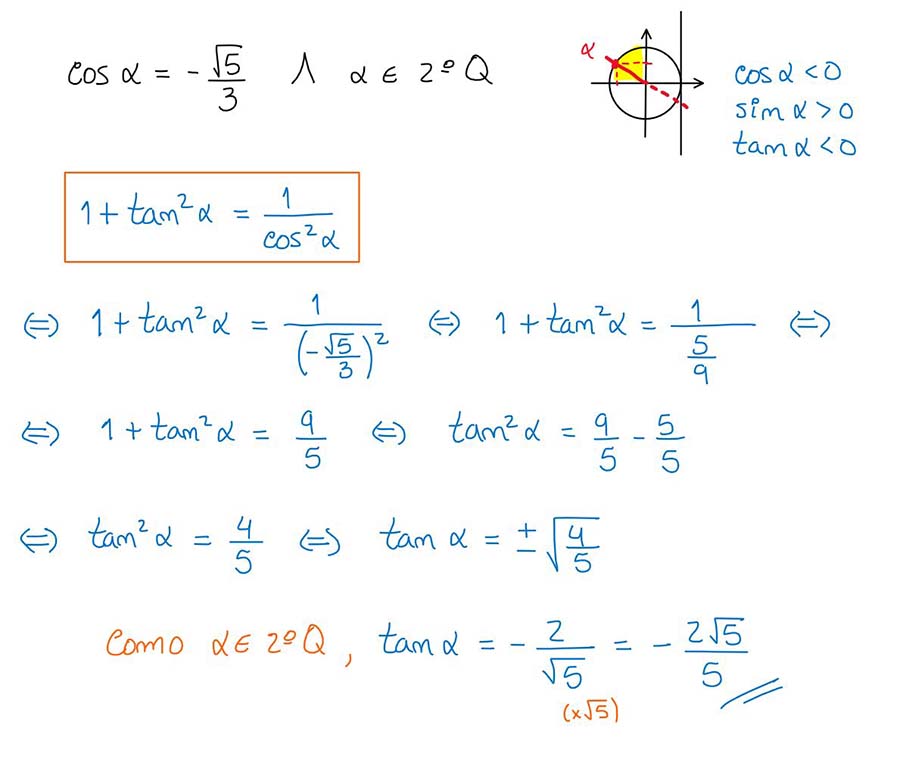 cos α = - √5/3 ∧ α ∈ 2º Q
α
cos α < 0
sin α > 0
tan α < 0
1 + tan² α = 1/cos² α
⇔ 1 + tan² α = 1/(-√5/3)² ⇔ 1 + tan² α = 1/(5/9) ⇔
⇔ 1 + tan² α = 9/5 ⇔ tan² α = 9/5 - 5/5
⇔ tan² α = 4/5 ⇔ tan α = ± √(4/5)
Como α ∈ 2º Q, tan α = - 2/√5 = - 2√5/5
(x√5)